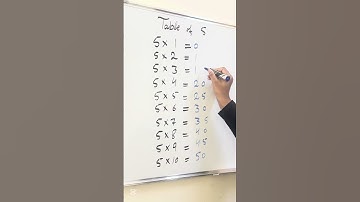 Table of 5
5 × 1 = 0
5 × 2 =
5 × 3 = 1
5 × 4 = 20
5 × 5 = 25
5 × 6 = 30
5 × 7 = 35
5 × 8 = 40
5 × 9 = 45
5 × 10 = 50